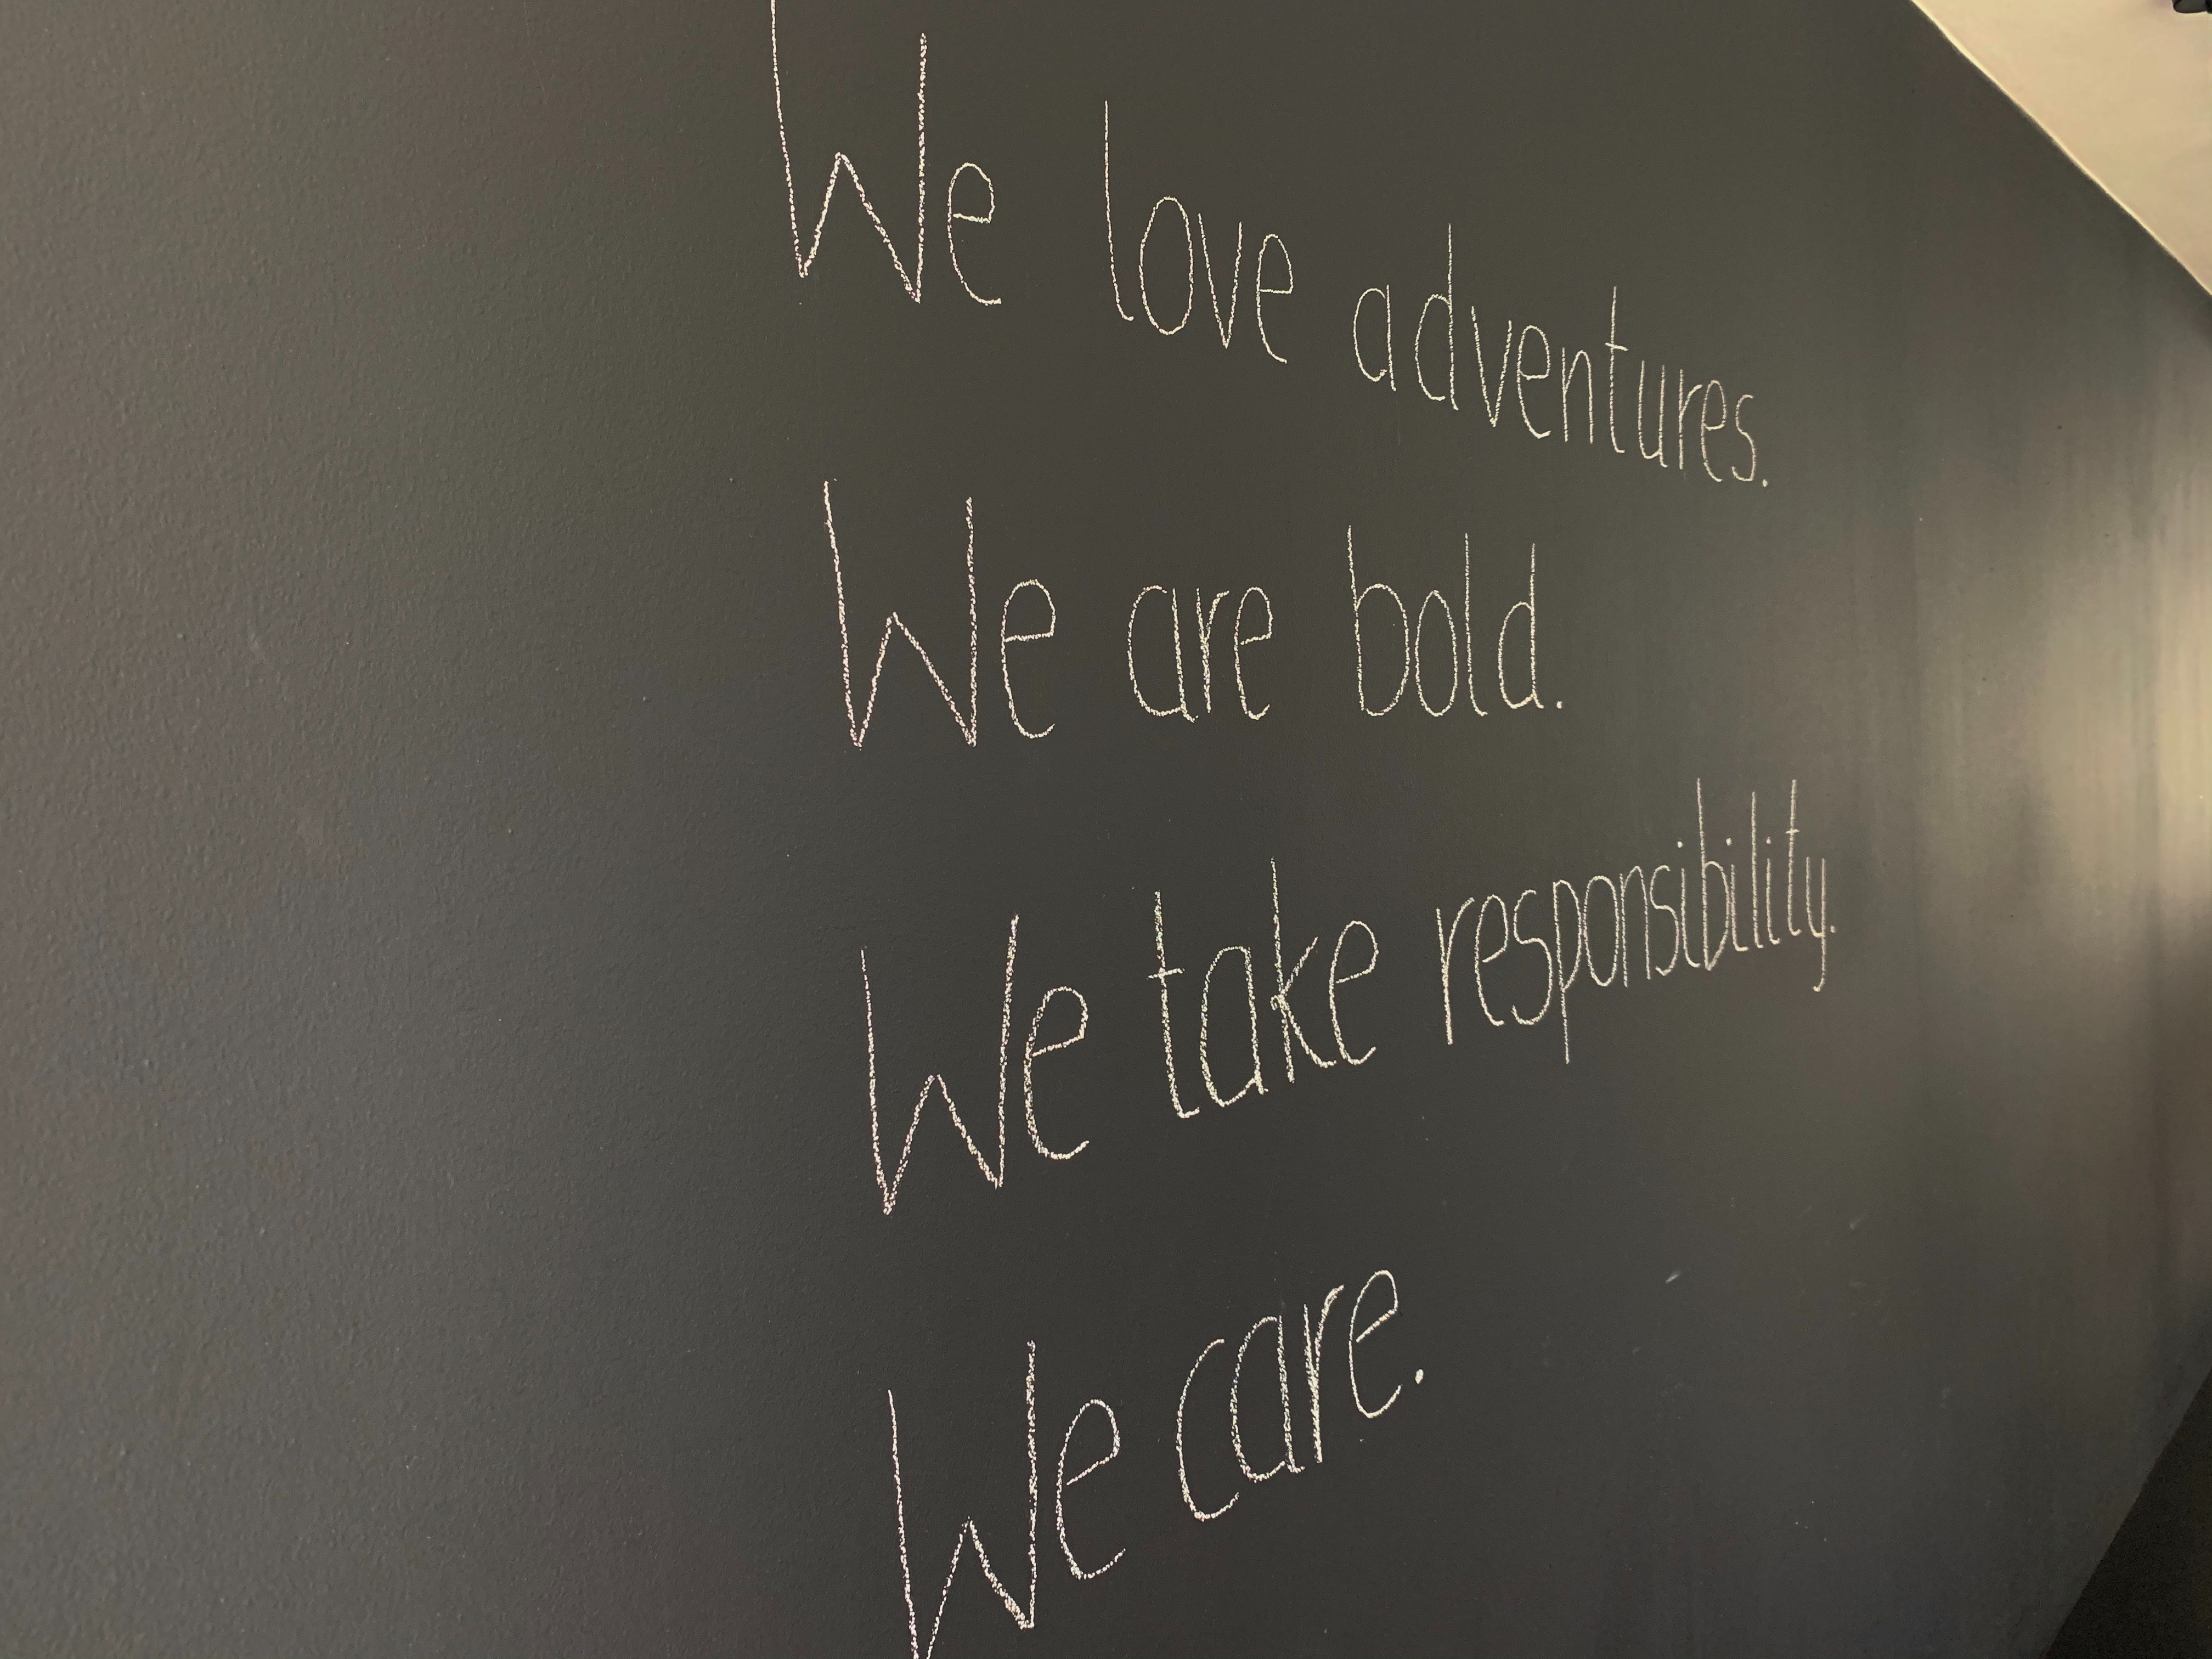 We love adventures.
We are bold.
We take responsibility.
We care.